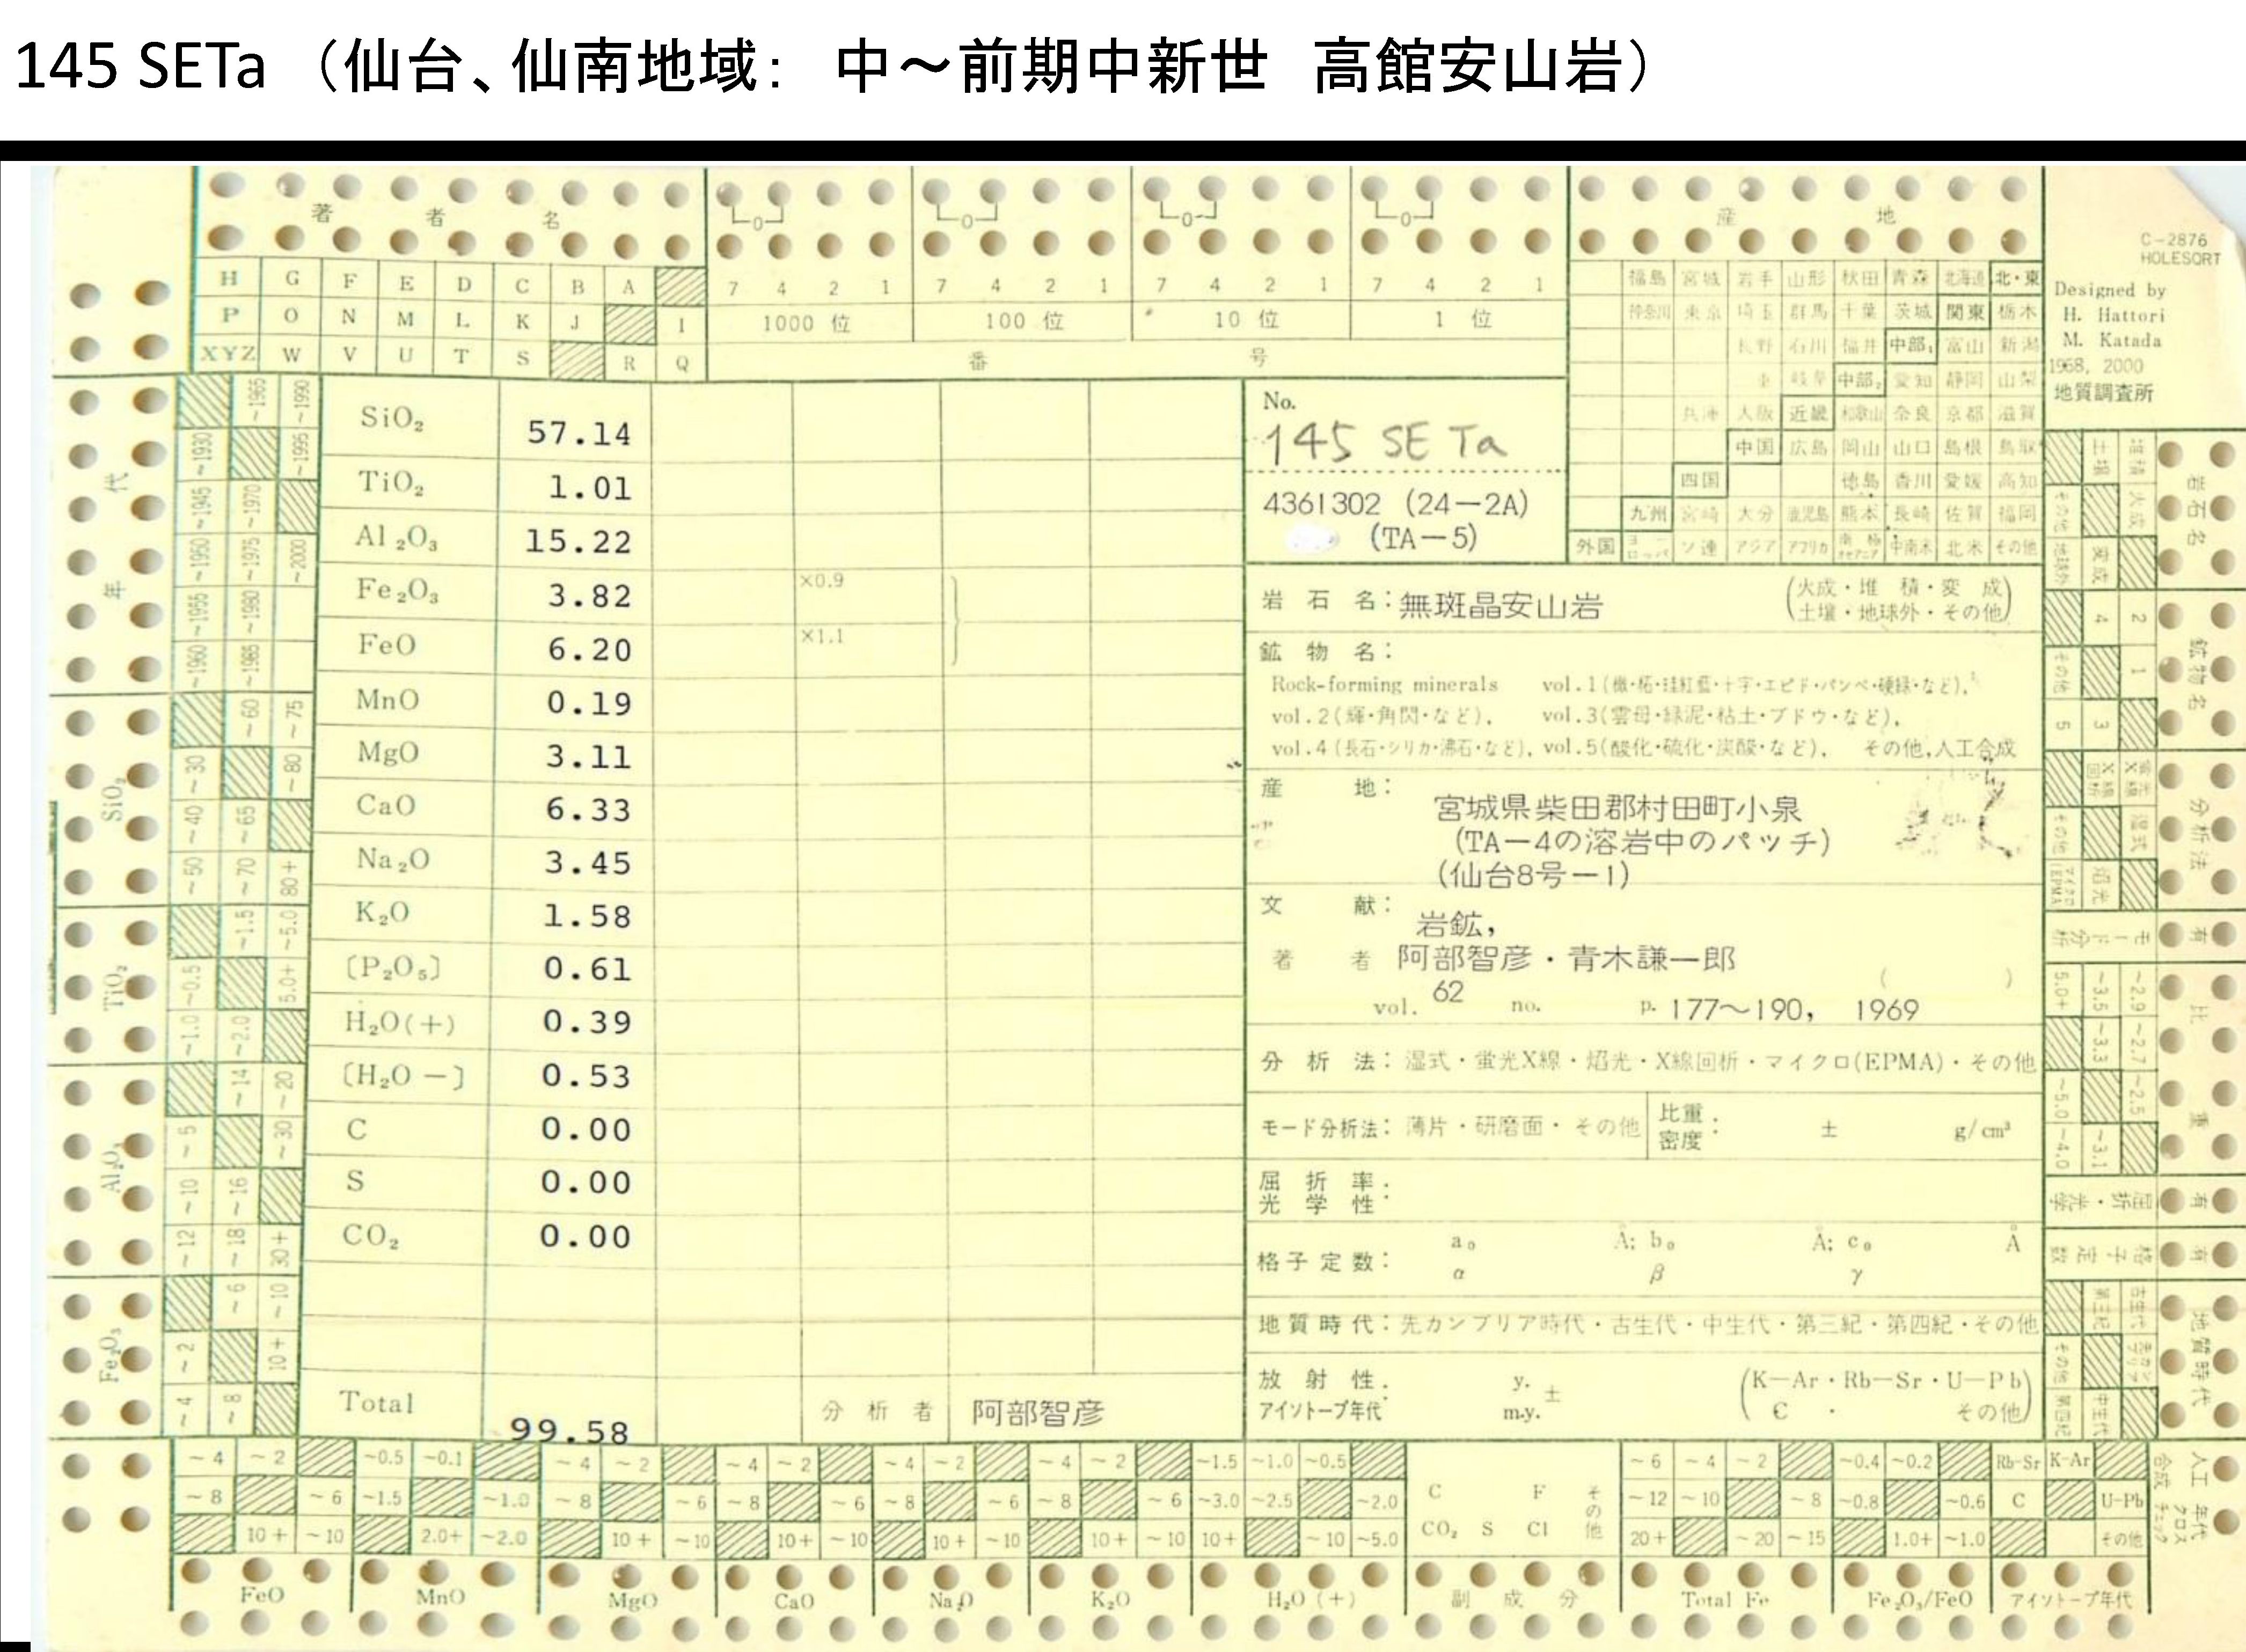 145 SETa （仙台、仙南地域： 中～前期中新世 高館安山岩）
著 者 名
H G F E D C B A
P O N M L K J I
XYZ W V U T S R Q
0 0 0 0
7 4 2 1 7 4 2 1 7 4 2 1 7 4 2 1
1000 位 100 位 10 位 1 位
番 号
産 地
福島 宮城 岩手 山形 秋田 青森 北海道 北・東
神奈川 東京 埼玉 群馬 千葉 茨城 関東 栃木
長野 石川 福井 中部₁ 富山 新潟
岐阜 中部₂ 愛知 静岡 山梨
兵庫 大阪 近畿 和歌山 奈良 京都 滋賀
中国 広島 岡山 山口 島根 鳥取
四国 徳島 香川 愛媛 高知
九州 宮崎 大分 鹿児島 熊本 長崎 佐賀 福岡
外国 ヨーロッパ ソ連 アジア アフリカ 南極オセアニア 中南米 北米 その他
C-2876
HOLESORT
Designed by
H. Hattori
M. Katada
1968, 2000
地質調査所
No.
145 SETa
4361302 (24-2A)
(TA-5)
SiO₂ 57.14
TiO₂ 1.01
Al₂O₃ 15.22
Fe₂O₃ 3.82 ×0.9
FeO 6.20 ×1.1
MnO 0.19
MgO 3.11
CaO 6.33
Na₂O 3.45
K₂O 1.58
〔P₂O₅〕 0.61
H₂O(+) 0.39
〔H₂O −〕 0.53
C 0.00
S 0.00
CO₂ 0.00
Total 99.58
分 析 者 阿部智彦
岩 石 名：無斑晶安山岩 (火成・堆 積・変 成
土壌・地球外・その他)
鉱 物 名：
Rock-forming minerals vol.1(橄・柘・珪紅藍・十字・エピド・パンペ・硬緑・など),
vol.2(輝・角閃・など), vol.3(雲母・緑泥・粘土・ブドウ・など),
vol.4(長石・シリカ・沸石・など), vol.5(酸化・硫化・炭酸・など), その他,人工合成
産 地： 宮城県柴田郡村田町小泉
(TA-4の溶岩中のパッチ)
(仙台8号-1)
文 献： 岩鉱,
著 者 阿部智彦・青木謙一郎 ( )
vol. 62 no. p. 177～190, 1969
分 析 法：湿式・蛍光X線・焰光・X線回析・マイクロ(EPMA)・その他
モード分析法：薄片・研磨面・その他 比重・密度： ± g/cm³
屈 折 率・
光 学 性：
格子定数： a₀ Å; b₀ Å; c₀ Å
α β γ
地質時代：先カンブリア時代・古生代・中生代・第三紀・第四紀・その他
放 射 性・ y. ± (K-Ar・Rb-Sr・U-Pb
アイソトープ年代 m.y. C ・ その他)
年 代
~1965 ~1990
~1930 ~1995
~1945 ~1970
~1950 ~1975 ~2000
~1955 ~1980
~1960 ~1985
SiO₂
~60 ~75
~30 ~80
~40 ~65
~50 ~70 80+
TiO₂
~1.5 ~5.0
~0.5 5.0+
~1.0 ~2.0
Al₂O₃
~14 ~20
~5 ~30
~10 ~16
~12 ~18 30+
Fe₂O₃
~6 ~10
~2 10+
~4 ~8
岩石名
土壌 堆積
その他 火成
地球外 変成
鉱物名
4 2
その他 1
5 3
分析法
X線回析 蛍光X線
その他 湿式
マイクロ(EPMA) 焰光
モード分析 有
比 重
5.0+ ~3.5 ~2.9
~3.3 ~2.7
~5.0 ~2.5
~4.0 ~3.1
屈折・光学 有
格子定数 有
地質時代
第三紀 古生代
その他 先カンブリア
第四紀 中生代
~4 ~2 ~0.5 ~0.1 ~4 ~2 ~4 ~2 ~4 ~2 ~4 ~2 ~1.5 ~1.0 ~0.5 ~6 ~4 ~2 ~0.4 ~0.2 Rb-Sr K-Ar
~8 ~6 ~1.5 ~1.0 ~8 ~6 ~8 ~6 ~8 ~6 ~8 ~6 ~3.0 ~2.5 ~2.0 C F その他 ~12 ~10 ~8 ~0.8 ~0.6 C U-Pb
10+ ~10 2.0+ ~2.0 10+ ~10 10+ ~10 10+ ~10 10+ ~10 10+ ~10 ~5.0 CO₂ S Cl 20+ ~20 ~15 1.0+ ~1.0 その他
人工合成 年代クロスチェック
FeO MnO MgO CaO Na₂O K₂O H₂O (+) 副 成 分 Total Fe Fe₂O₃/FeO アイソトープ年代